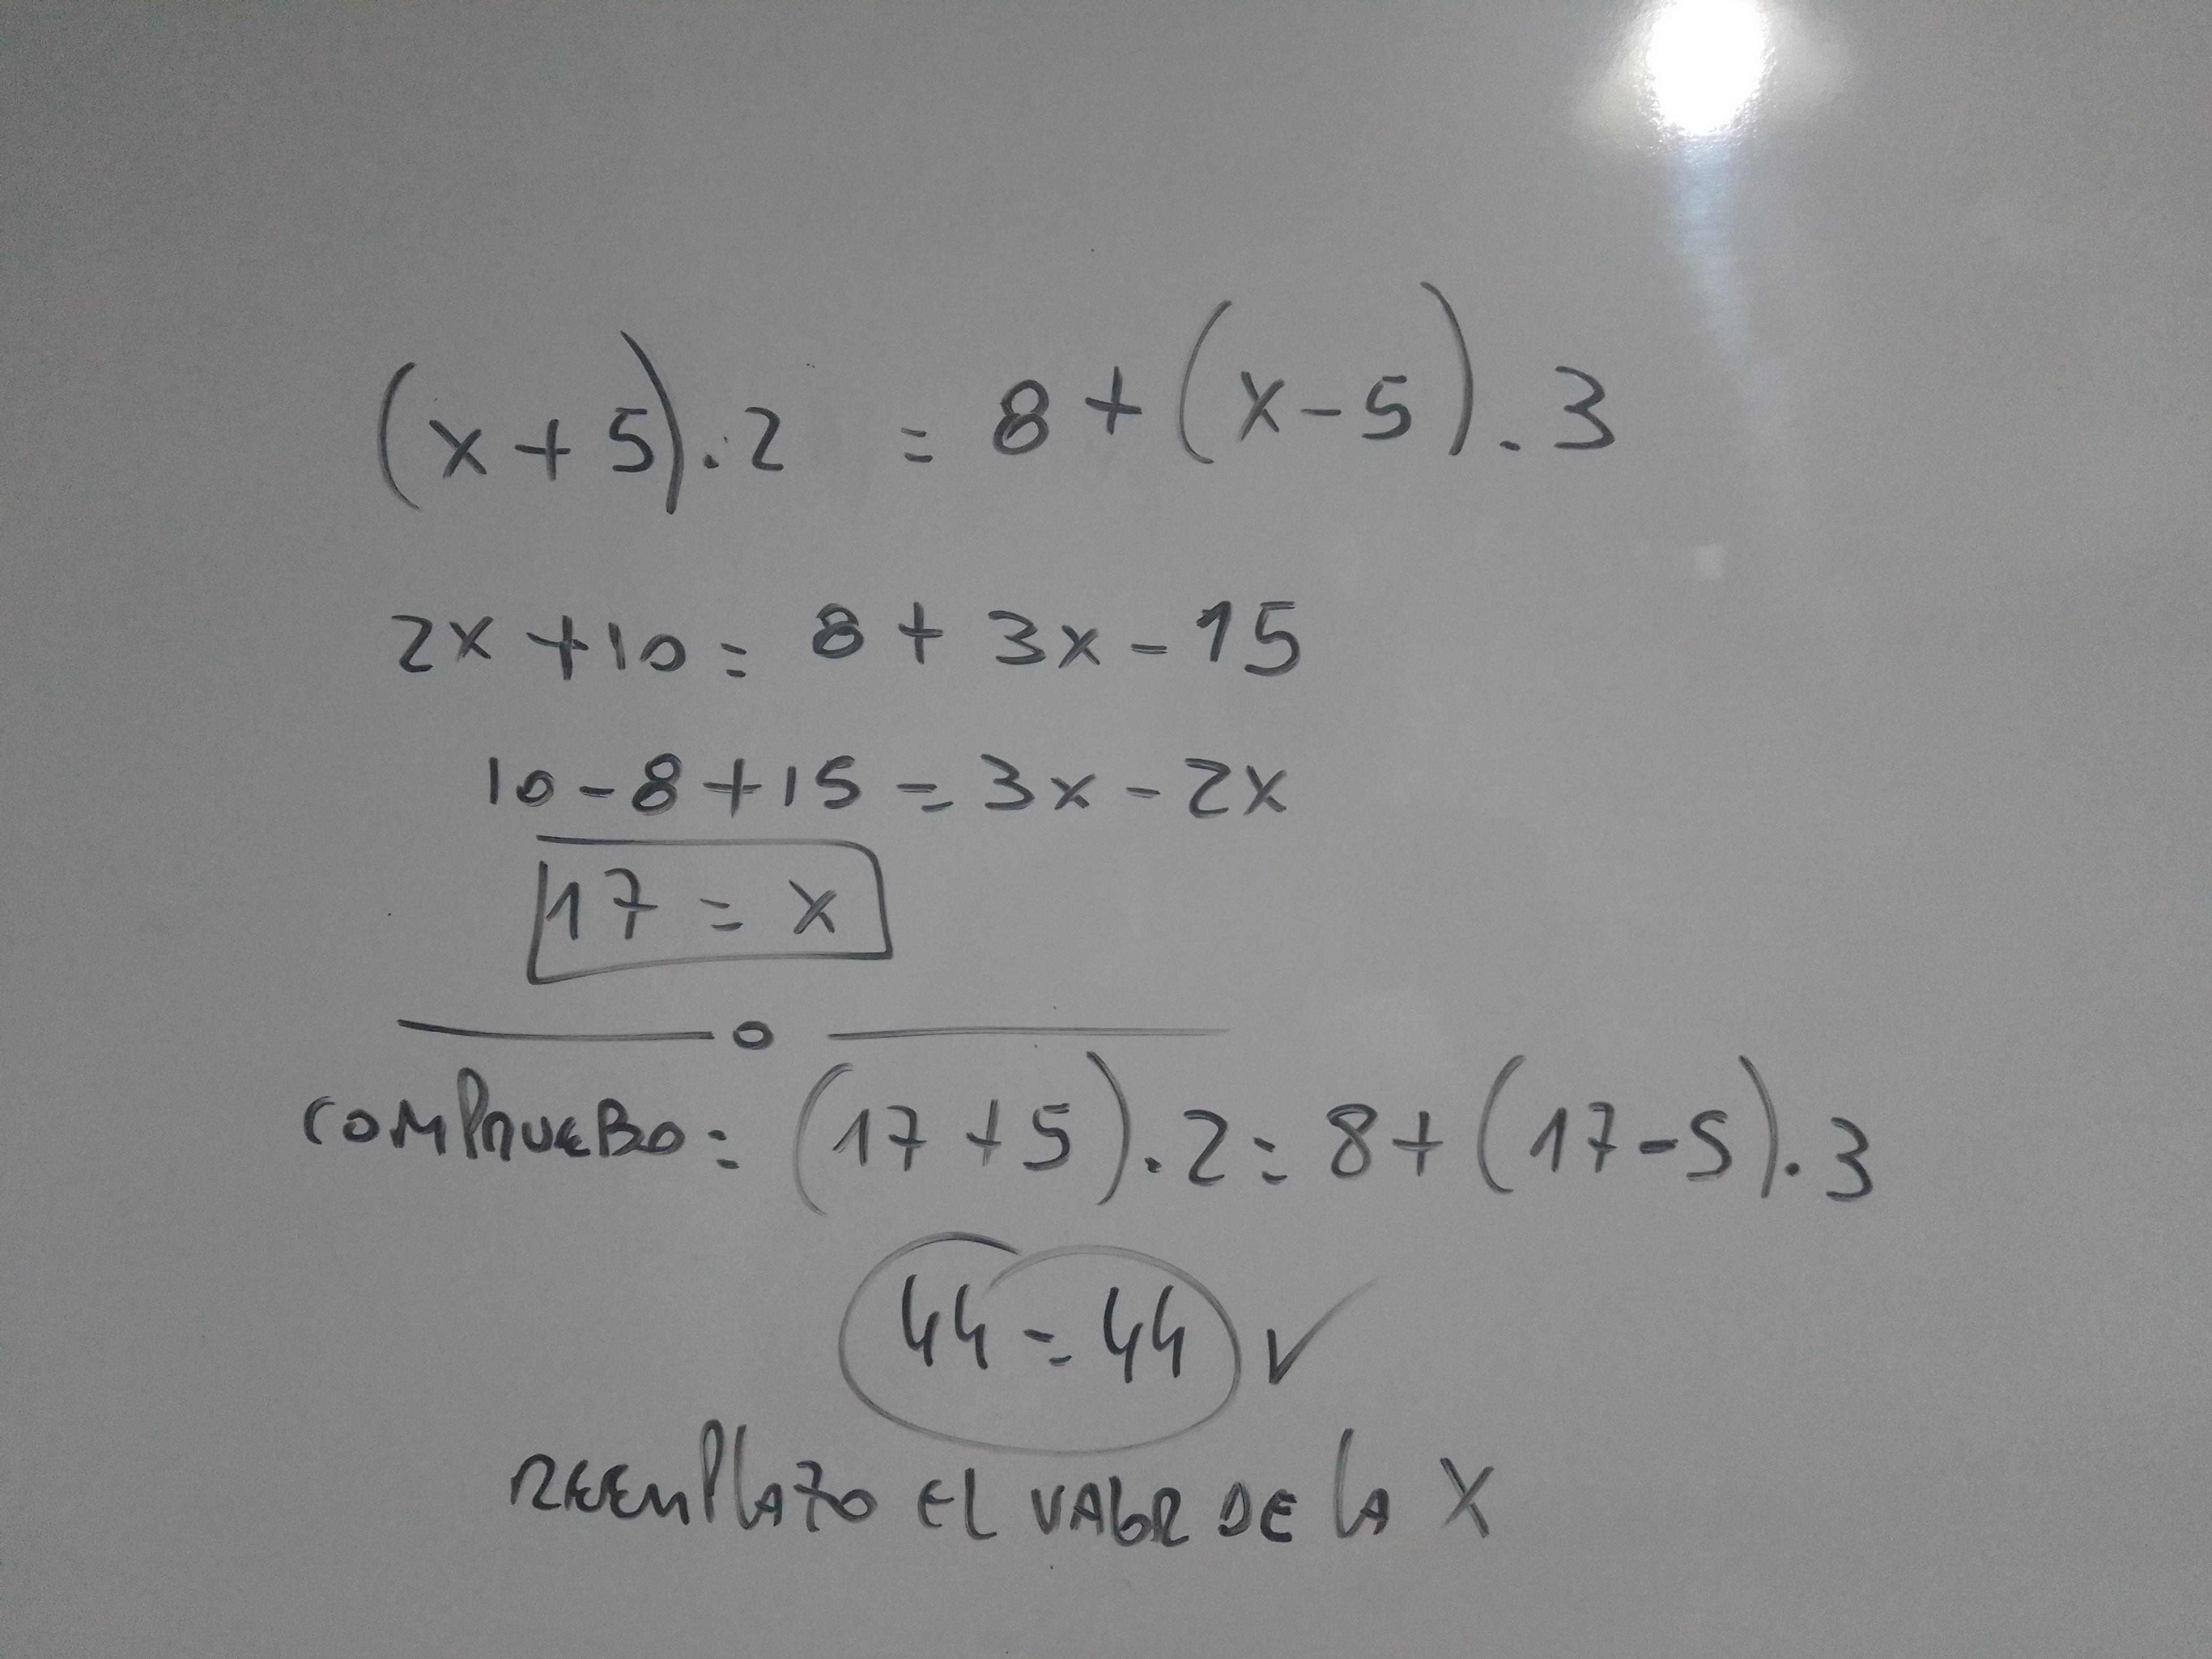 (x+5).2 = 8+(x-5).3
2x+10= 8+3x-15
10-8+15=3x-2x
17=x
COMPRUEBO: (17+5).2=8+(17-5).3
44=44 ✓
REEMPlAZO El VAlOR DE lA X